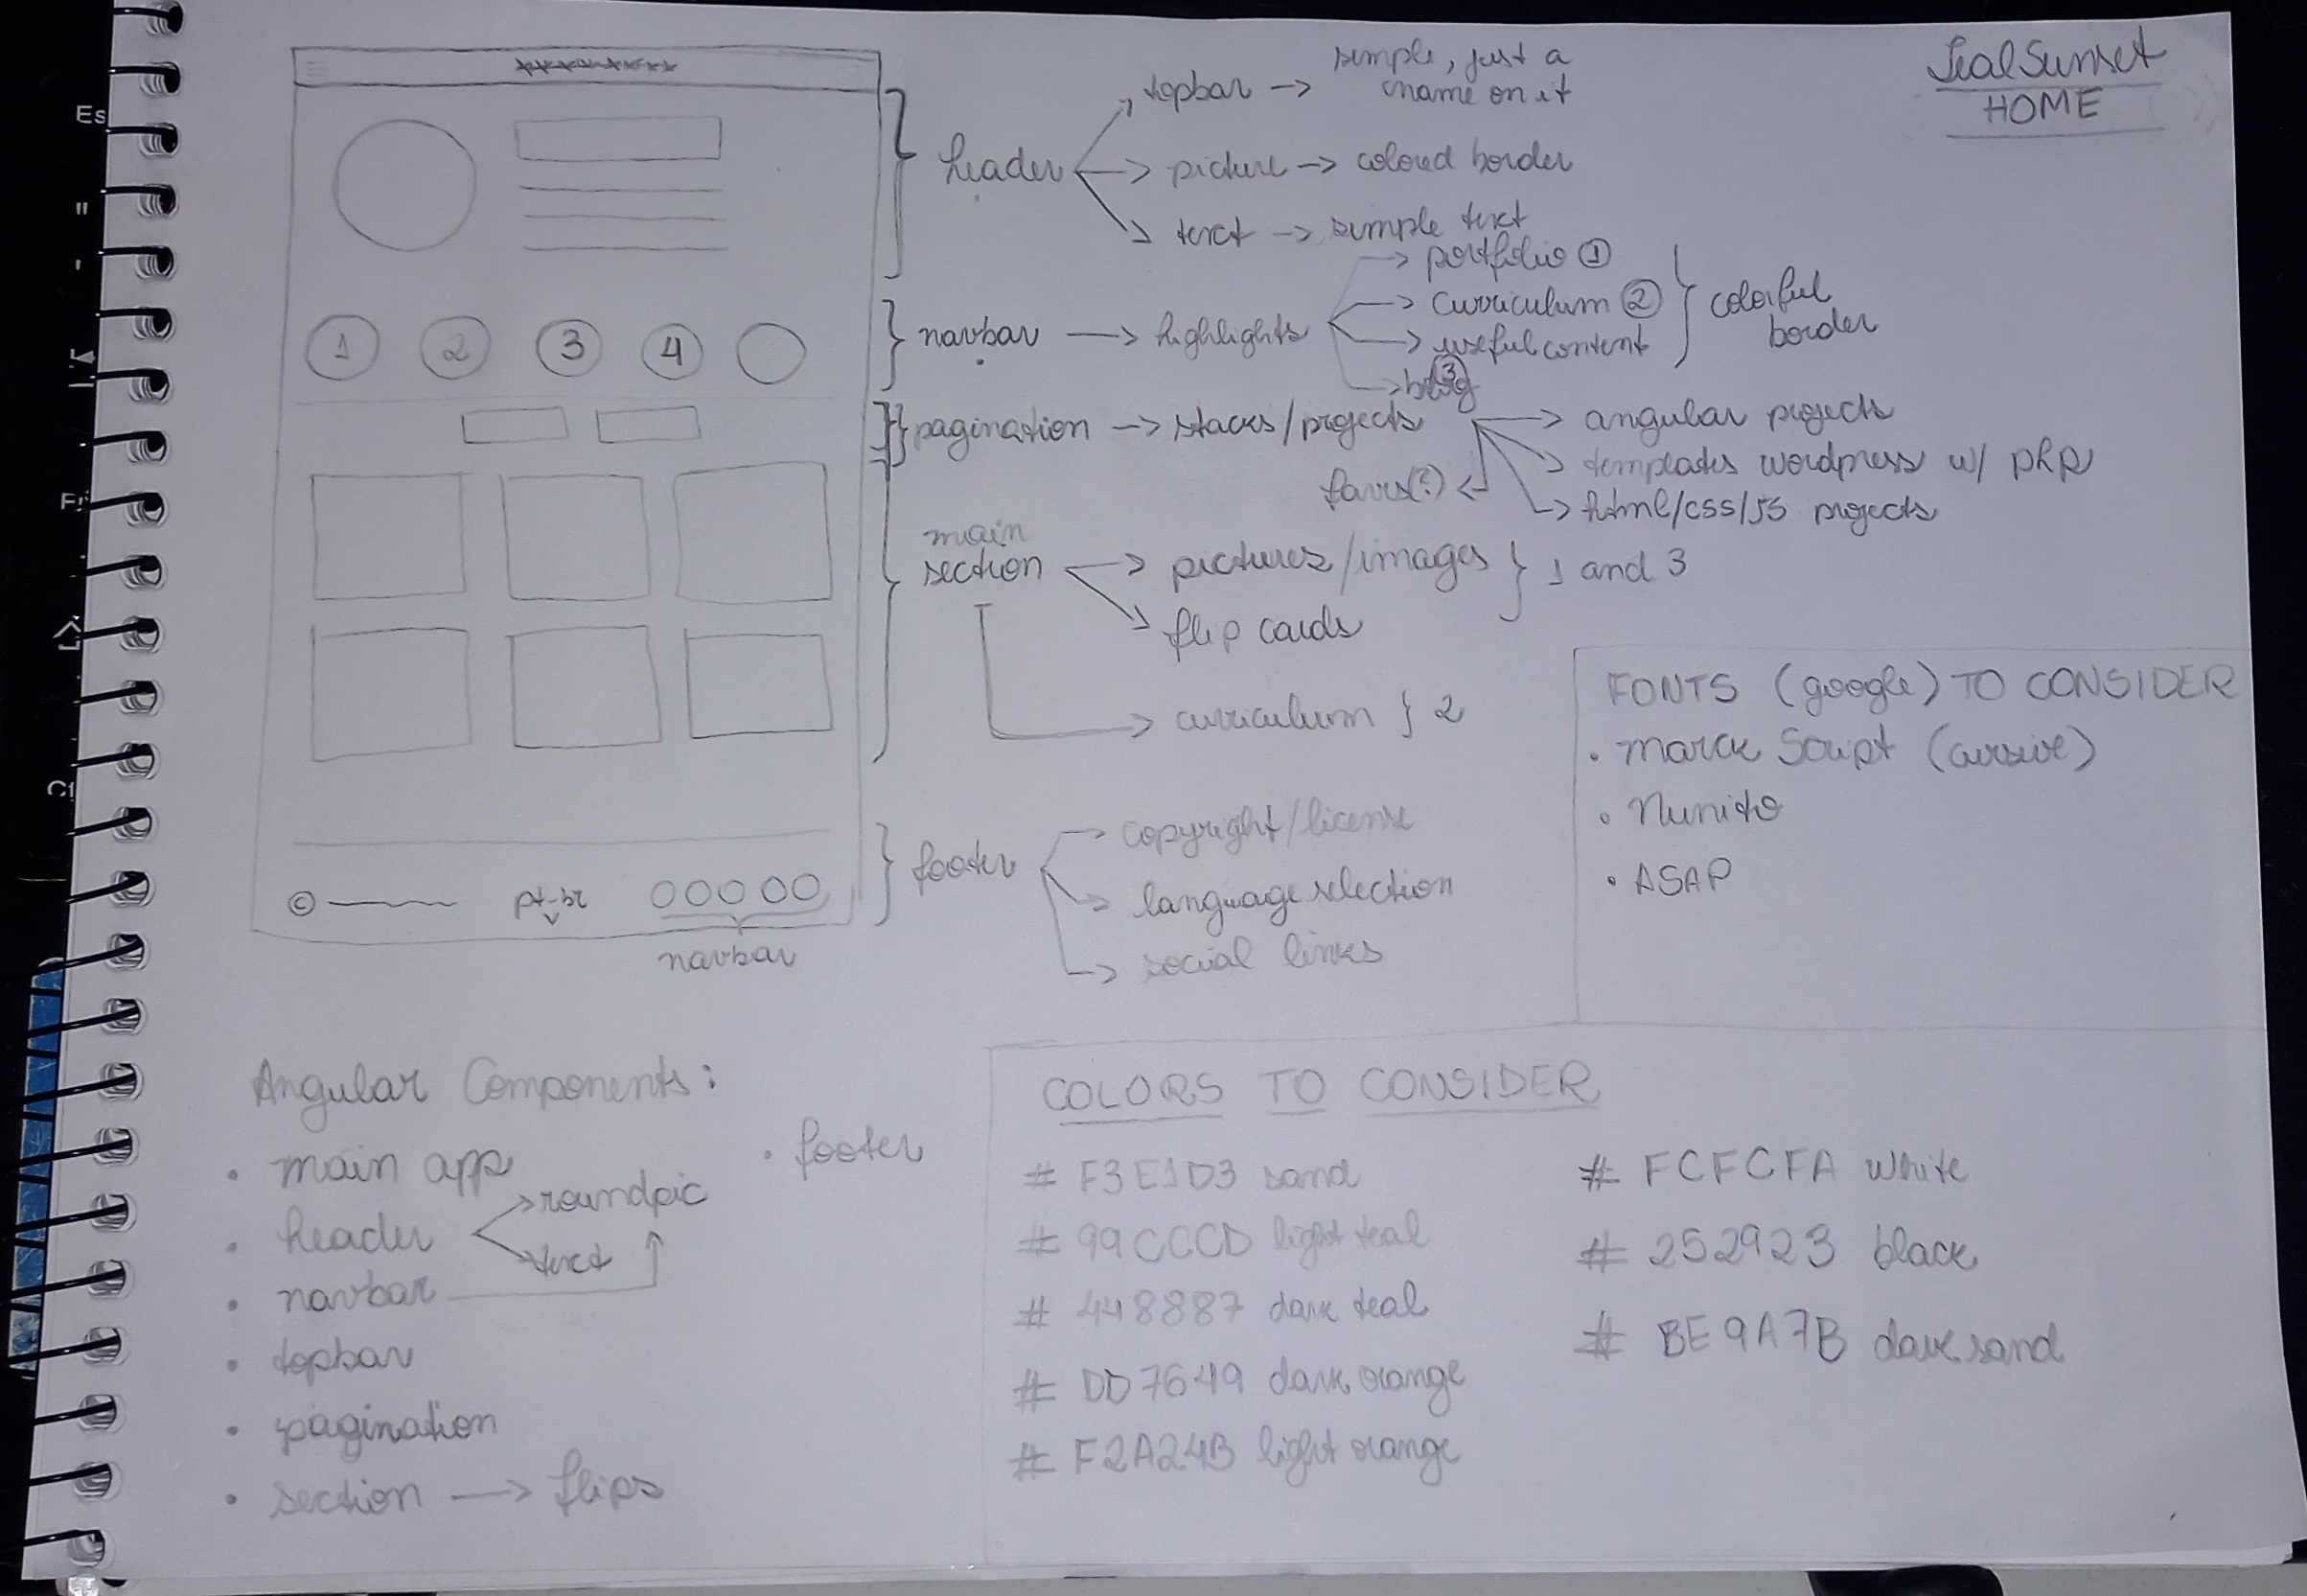 TealSunset
HOME
header
topbar -> simple, just a
name on it
picture -> colored border
text -> simple text
1 2 3 4
navbar -> highlights
portfolio 1
curriculum 2
useful content
3
blog
colorful
border
pagination -> stacks/projects
angular projects
templates wordpress w/ php
html/css/JS projects
faves(?)
main
section
pictures/images } 1 and 3
flip cards
curriculum } 2
© pt-br
navbar
footer
copyright/license
language selection
social links
FONTS (google) TO CONSIDER
• Marck Script (cursive)
• Nunito
• ASAP
Angular Components:
• main app
• header
roundpic
text
• navbar
• topbar
• pagination
• section -> flips
• footer
COLORS TO CONSIDER
# F3E1D3 sand
# 99CCCD light teal
# 448887 dark teal
# DD7649 dark orange
# F2A24B light orange
# FCFCFA white
# 252923 black
# BE9A7B dark sand
Es
"
'